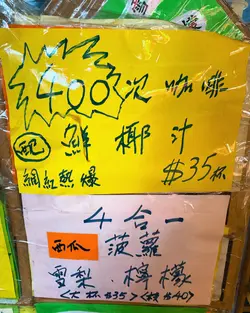 400次 咖啡
配 鮮 椰 汁
網紅熱爆 $35杯
4 合 一
西瓜 菠蘿
雪梨 檸檬
<大杯$35> $40>